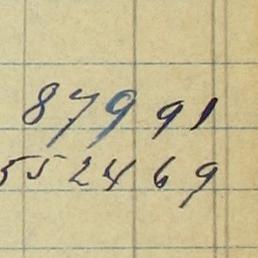 87991
552469